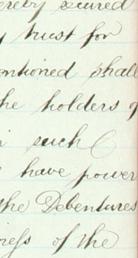 ereby secured
y trust for
entioned shall
the holders of
such
have power
the Debentures
iness of the